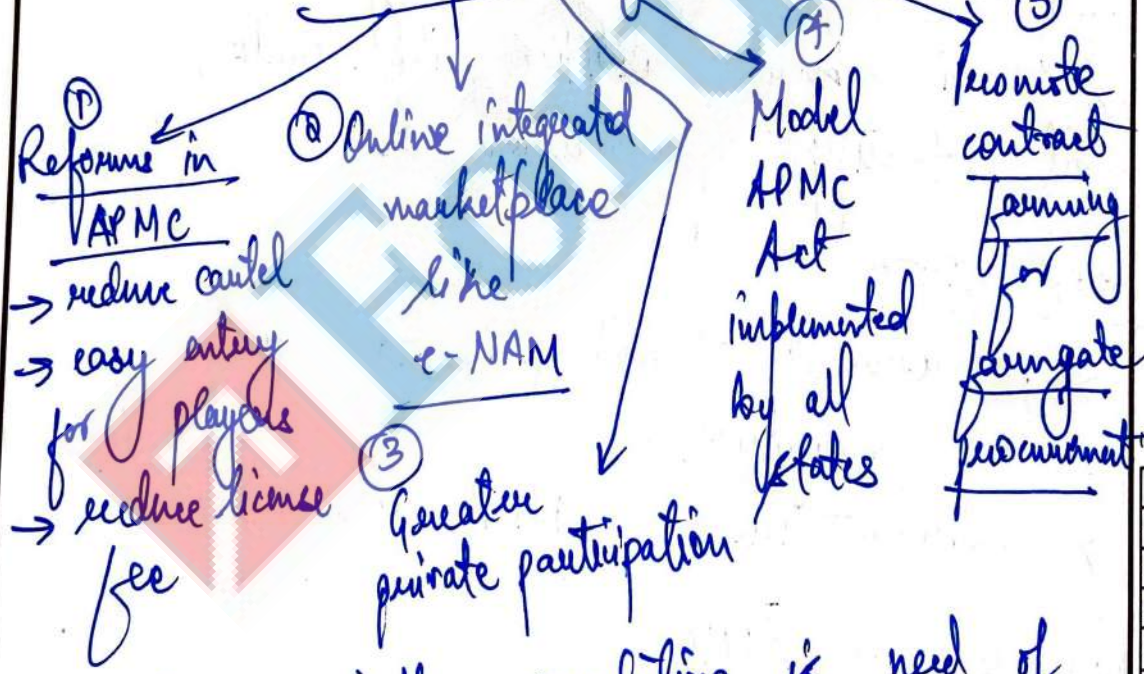 ①
Reforms in
APMC
→ reduce cartel
→ easy entry
for players
→ reduce license
fee
② Online integrated
marketplace
like
e-NAM
③
Greater
private participation
④
Model
APMC
Act
implemented
by all
states
⑤
Promote
contract
farming
for
farmgate
procurement
is need of